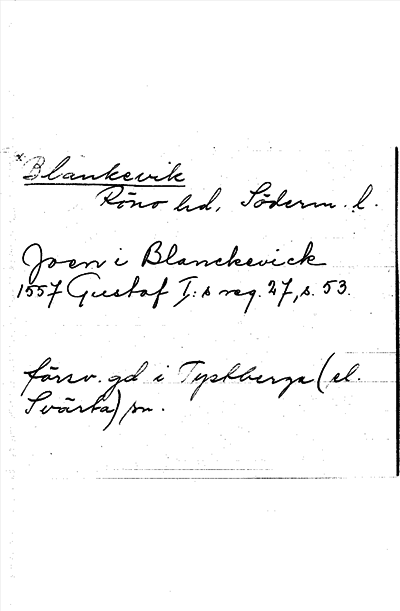 x Blankevik
Röno hd, Söderm. l.
Joen i Blanckevick
1557 Gustaf I:s reg. 27, s. 53.
försv. gd i Tystberga (el.
Svärta) sn.